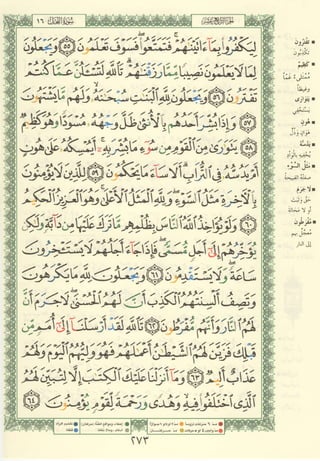 الجزء الرابع عشر
سُورَةُ النَّحْل ١٦
لِيَكْفُرُوا۟ بِمَآ ءَاتَيْنَٰهُمْ ۚ فَتَمَتَّعُوا۟ ۖ فَسَوْفَ تَعْلَمُونَ ٥٥ وَيَجْعَلُونَ
لِمَا لَا يَعْلَمُونَ نَصِيبًا مِّمَّا رَزَقْنَٰهُمْ ۗ تَٱللَّهِ لَتُسْـَٔلُنَّ عَمَّا كُنتُمْ
تَفْتَرُونَ ٥٦ وَيَجْعَلُونَ لِلَّهِ ٱلْبَنَٰتِ سُبْحَٰنَهُۥ ۙ وَلَهُم مَّا يَشْتَهُونَ
٥٧ وَإِذَا بُشِّرَ أَحَدُهُم بِٱلْأُنثَىٰ ظَلَّ وَجْهُهُۥ مُسْوَدًّا وَهُوَ كَظِيمٌ
٥٨ يَتَوَٰرَىٰ مِنَ ٱلْقَوْمِ مِن سُوٓءِ مَا بُشِّرَ بِهِۦٓ ۚ أَيُمْسِكُهُۥ عَلَىٰ هُونٍ
أَمْ يَدُسُّهُۥ فِى ٱلتُّرَابِ ۗ أَلَا سَآءَ مَا يَحْكُمُونَ ٥٩ لِلَّذِينَ لَا يُؤْمِنُونَ
بِٱلْءَاخِرَةِ مَثَلُ ٱلسَّوْءِ ۖ وَلِلَّهِ ٱلْمَثَلُ ٱلْأَعْلَىٰ ۚ وَهُوَ ٱلْعَزِيزُ ٱلْحَكِيمُ
٦٠ وَلَوْ يُؤَاخِذُ ٱللَّهُ ٱلنَّاسَ بِظُلْمِهِم مَّا تَرَكَ عَلَيْهَا مِن دَآبَّةٍ وَلَٰكِن
يُؤَخِّرُهُمْ إِلَىٰٓ أَجَلٍ مُّسَمًّى ۖ فَإِذَا جَآءَ أَجَلُهُمْ لَا يَسْتَـْٔخِرُونَ
سَاعَةً ۖ وَلَا يَسْتَقْدِمُونَ ٦١ وَيَجْعَلُونَ لِلَّهِ مَا يَكْرَهُونَ
وَتَصِفُ أَلْسِنَتُهُمُ ٱلْكَذِبَ أَنَّ لَهُمُ ٱلْحُسْنَىٰ ۖ لَا جَرَمَ أَنَّ
لَهُمُ ٱلنَّارَ وَأَنَّهُم مُّفْرَطُونَ ٦٢ تَٱللَّهِ لَقَدْ أَرْسَلْنَآ إِلَىٰٓ أُمَمٍ مِّن
قَبْلِكَ فَزَيَّنَ لَهُمُ ٱلشَّيْطَٰنُ أَعْمَٰلَهُمْ فَهُوَ وَلِيُّهُمُ ٱلْيَوْمَ وَلَهُمْ
عَذَابٌ أَلِيمٌ ٦٣ وَمَآ أَنزَلْنَا عَلَيْكَ ٱلْكِتَٰبَ إِلَّا لِتُبَيِّنَ لَهُمُ
ٱلَّذِى ٱخْتَلَفُوا۟ فِيهِ ۙ وَهُدًى وَرَحْمَةً لِّقَوْمٍ يُؤْمِنُونَ ٦٤
تَفْتَرُون
تَكْذِبُونَ
كَظِيمٌ
يَتَوَارَى
يَسْتَخْفِي
هُونٍ
هَوَانٍ وَذُلّ
يَدُسُّهُ
مَثَلُ السَّوْء
لَا جَرَمَ
مُفْرَطُون
إلى النار
٢٧٣